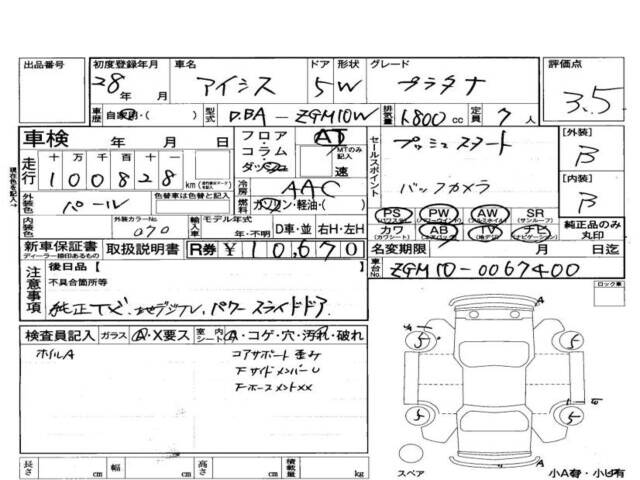 出品番号
初度登録年月
車名
ドア
形状
グレード
評価点
28年 月
アイシス
5
W
プラタナ
3.5
車歴
自家用・( )
型式
DBA-ZGM10W
排気量
1800cc
定員
7人
車検
年 月 日
フロア・コラム・ダッシュ
AT
MTのみ記入
速
セールスポイント
プッシュスタート
バックカメラ
[外装]
B
[内装]
B
走行
十 万 千 百 十 一
100828
km
冷房
AAC
燃料
ガソリン・軽油・( )
外装色
パール
色替車は色替と記入
内装色
外装カラーNo.
070
輸入車
モデル年式
年・不明
D車・並
右H・左H
PS
(パワステ)
PW
(パワーウィンド)
AW
(アルミホイル)
SR
(サンルーフ)
カワ
(カワシート)
AB
(エアバッグ)
TV
(地デジ)
ナビ
(ナビゲーション)
純正品のみ丸印
新車保証書
ディーラー捺印あるもの
取扱説明書
R券
¥10,670
名変期限
月 日迄
車台No.
ZGM10-0067400
現在の色を記入→
注意事項
後日品[ ]
不具合箇所等
純正TV、地デジTV、パワースライドドア
ロック車
検査員記入
ガラス
A・X要ス
室内シート
A・コゲ・穴・汚れ・破れ
ホイルA
コアサポート歪み
FサイドメンバーU
5
5
5
5
A
A
スペア
小A有・小U有
長さ
cm
幅
cm
高さ
cm
積載量
kg